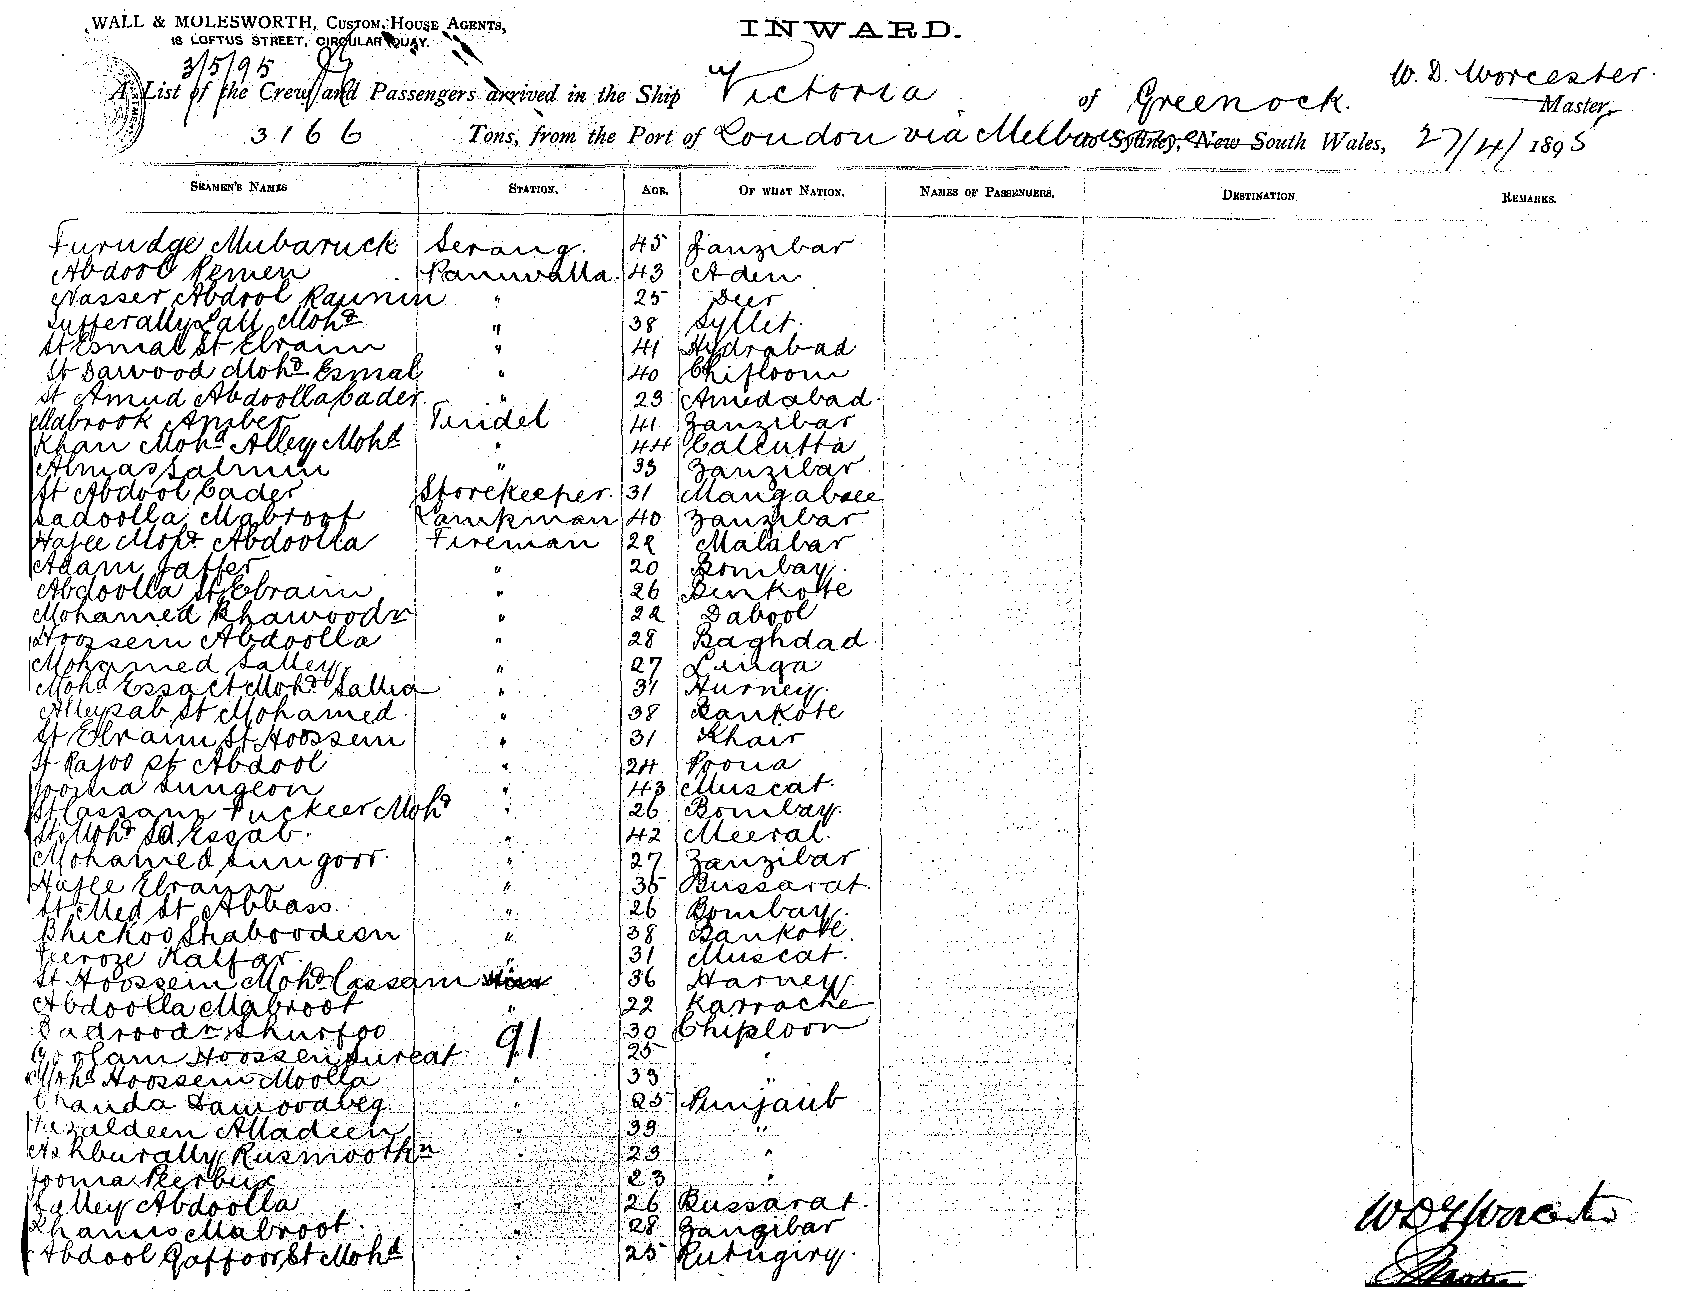 WALL & MOLESWORTH, CUSTOM HOUSE AGENTS,
18 LOFTUS STREET, CIRCULAR QUAY.
INWARD.
3/5/95
W. D. Worcester
A List of the Crew and Passengers arrived in the Ship Victoria of Greenock. Master,
3166 Tons, from the Port of London via Melbourne to Sydney, New South Wales, 27/4/1895
SEAMEN'S NAMES STATION. AGE. OF WHAT NATION. NAMES OF PASSENGERS. DESTINATION REMARKS.
Furudge Mubaruck Serang. 45 Zanzibar
Abdool Remen Paniwalla. 43 Aden
Nasser Abdool Raunin " 25 Deer
Sufferally Lall Mohd " 38 Syllit.
St Esmal St Ebraim " 41 Hydrabad
St Dawood Mohd Esmal " 40 Chifloom
St Amud Abdoolla Cader " 23 Amedabad.
Mabrook Amber Tindel 41 Zanzibar
Khan Mohd Alley Mohd " 44 Calcutta
Almas Salmin " 33 Zanzibar
St Abdool Cader Storekeeper. 31 Mangalsee
Sadoolla Mabroot Lampman 40 Zanzibar
Hajee Mohd Abdoolla Fireman 22 Malabar
Adam Jaffer " 20 Bombay.
Abdoolla St Ebraim " 26 Benkote
Mohamed Khawoodn " 22 Dabool
Hoossein Abdoolla " 28 Baghdad.
Mohamed Salley. " 27 Linga
Mohd Essact Mohd Sallia " 31 Hurney.
Alleysab St Mohamed. " 38 Bankote
St Ebraim St Hoossein " 31 Khair
St Rajoo St Abdool " 24 Poona
Jooma Sungeon " 43 Muscat.
St Cassam Fuckeer Mohd " 26 Bombay.
St Mohd Sd Essab. " 42 Meeral.
Mohamed Sungoor. " 27 Zanzibar
Hajee Ebraim " 35 Bussarat.
St Med St Abbass. " 26 Bombay.
Bhickoo Shaboodeen " 38 Bankote.
Feroze Kalfar. " 31 Muscat.
St Hoossein Mohd Cassam 36 Harney.
Abdoolla Mabroot " 22 Karrache
Badroodn Shurfoo 91 30 Chiploon
Goolam Hoossen Sureat " 25 "
Mohd Hoossein Moolla " 33 "
Chanda Samoodabeg " 25 Punjaub
Fezaldeen Alladeen " 39 "
Ashburally Rusmoothn " 23 "
Jooma Peerbux " 23 "
Salley Abdoolla " 26 Bussarat.
Khamis Mabroot. " 28 Zanzibar
Abdool Gaffoor St Mohd " 25 Rutugiry.
W D G Worcester
Master